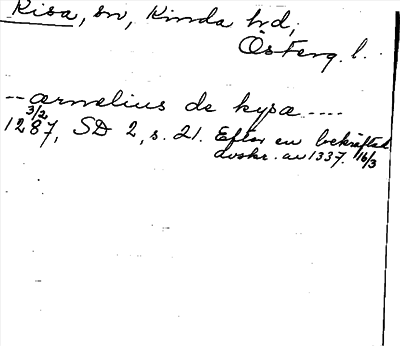 Kisa, sn, Kinda hd,
Österg. l.
-- ærnelius de kysæ ----
3/2
1287, SD 2, s. 21. Efter en bekräftad
avskr. av 1337. 16/3